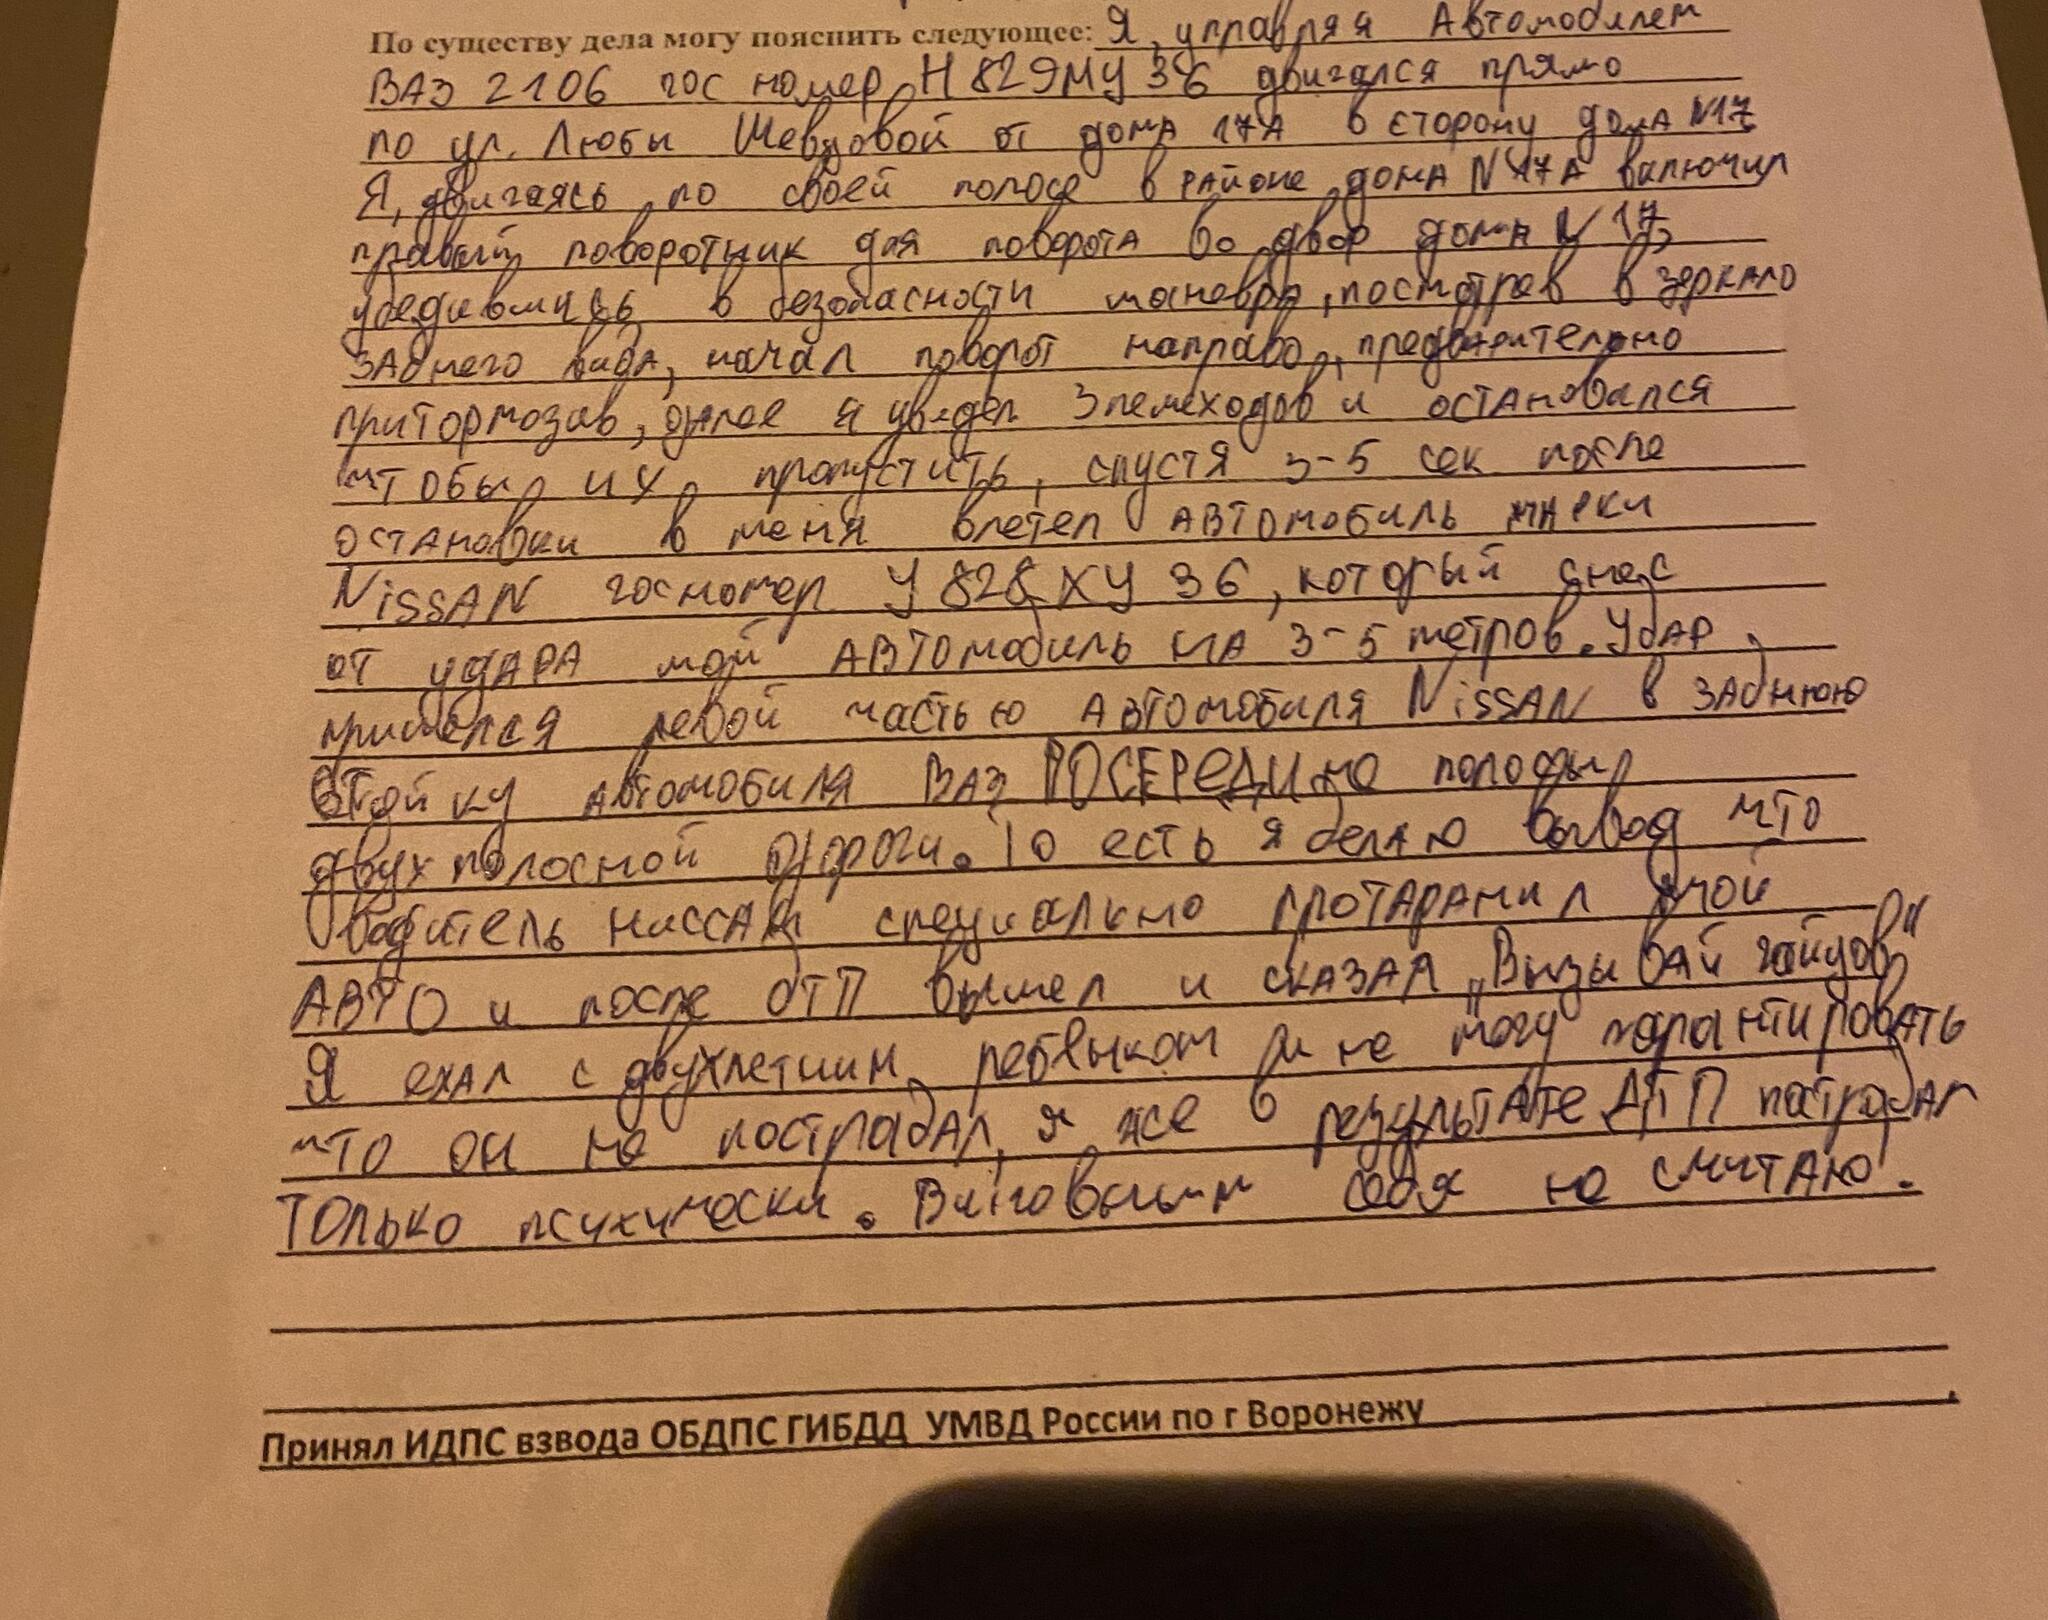 По существу дела могу пояснить следующее: Я, управляя Автомобилем
ВАЗ 2106 гос номер Н829МУ 36 двигался прямо
по ул. Любы Шевцовой от дома 17А в сторону дома N17
Я, двигаясь по своей полосе в районе дома N17А включил
правый поворотник для поворота во двор дома N17,
убедившись в безопасности маневра, посмотрев в зеркало
заднего вида, начал поворот направо, предварительно
притормозив, далее я увидел 3 пешеходов и остановился
чтобы их пропустить, спустя 3-5 сек после
остановки в меня влетел автомобиль марки
NISSAN госномер У828ХУ 36, который снес
от удара мой автомобиль на 3-5 метров. Удар
пришелся левой частью автомобиля NISSAN в заднюю
стойку автомобиля ВАЗ ПОСЕРЕДИне полосы
двух полосной дороги. То есть я делаю вывод что
водитель Ниссан специально протаранил мой
АВТО и после ДТП вышел и сказал „Вызывай гайцов"
Я ехал с двухлетним ребёнком и не могу гарантировать
что он не пострадал, я же в результате ДТП пострадал
только психически. Виновным себя не считаю.
Принял ИДПС взвода ОБДПС ГИБДД УМВД России по г Воронежу